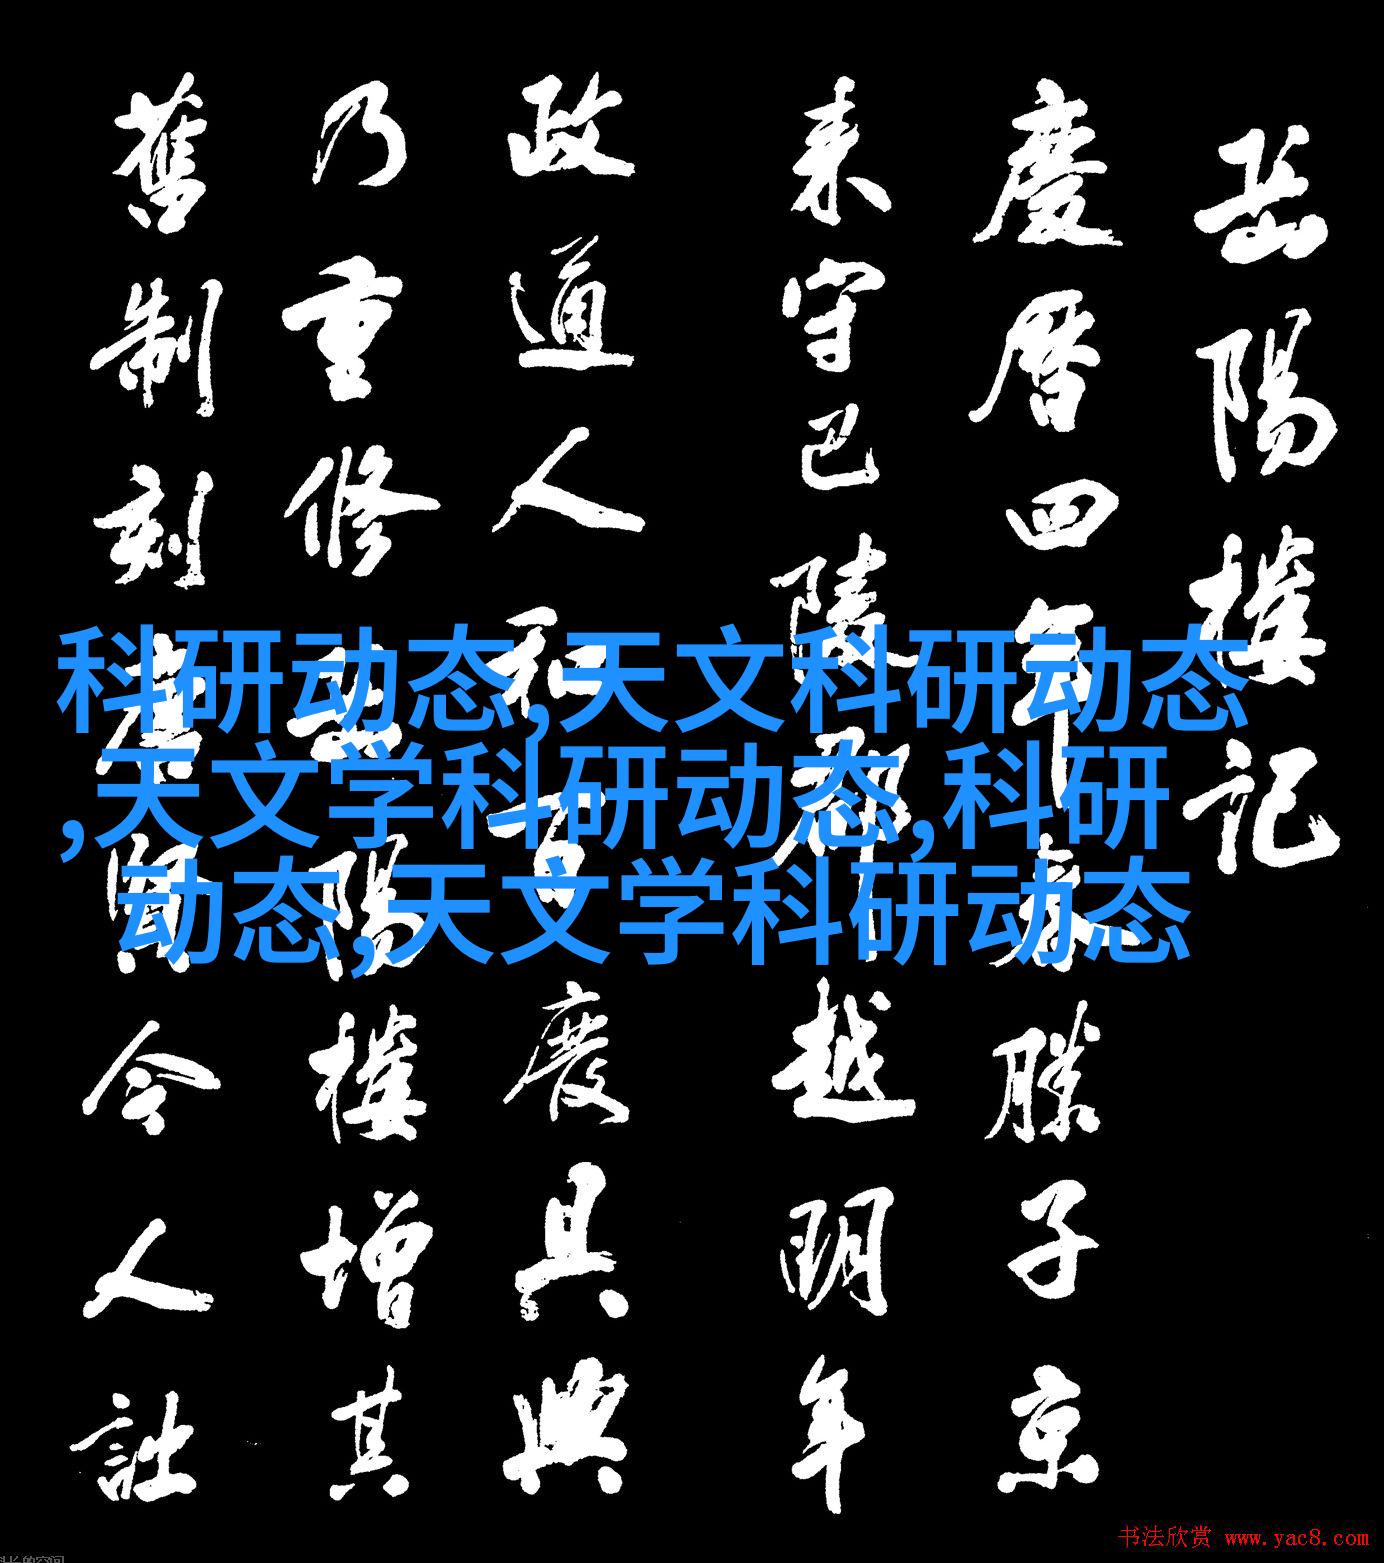 岳陽樓記
慶曆四年春滕子京
来守巴陵郡越明年
政通人和百廢具興
乃重修岳陽樓增其
舊制刻唐賢今人詩
科研动态,天文科研动态
,天文学科研动态,科研
动态,天文学科研动态
书法欣赏 www.yac8.com